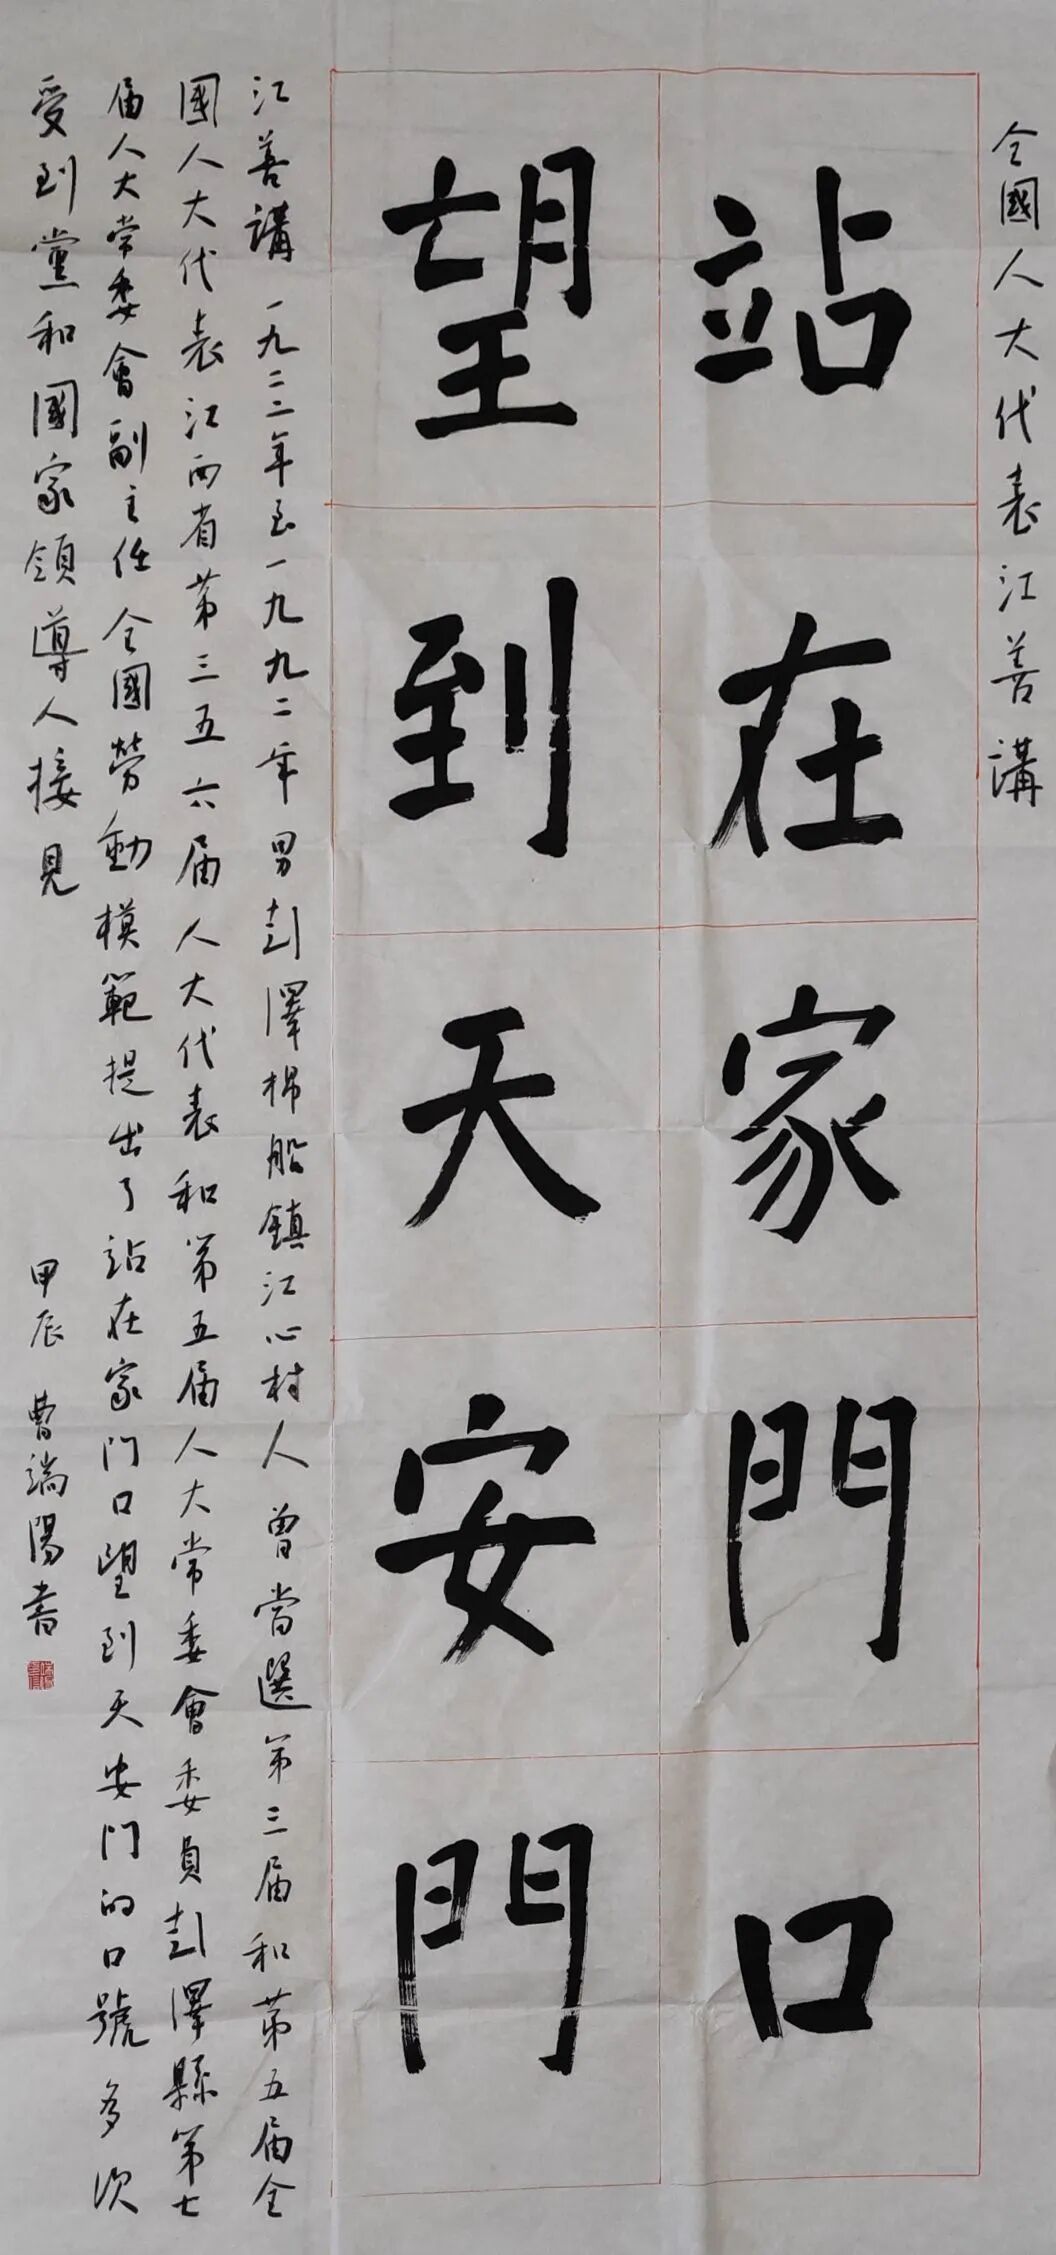 全國人大代表江善講
站在家門口
望到天安門
江善講 一九二二年至一九九二年 男 彭澤棉船鎮江心村人 曾當選第三届和第五届全
國人大代表江西省第三五六届人大代表和第五届人大常委會委員彭澤縣第七
届人大常委會副主任全國勞動模範提出了站在家门口望到天安门的口號 多次
受到黨和國家領導人接見
甲辰 曹端陽書